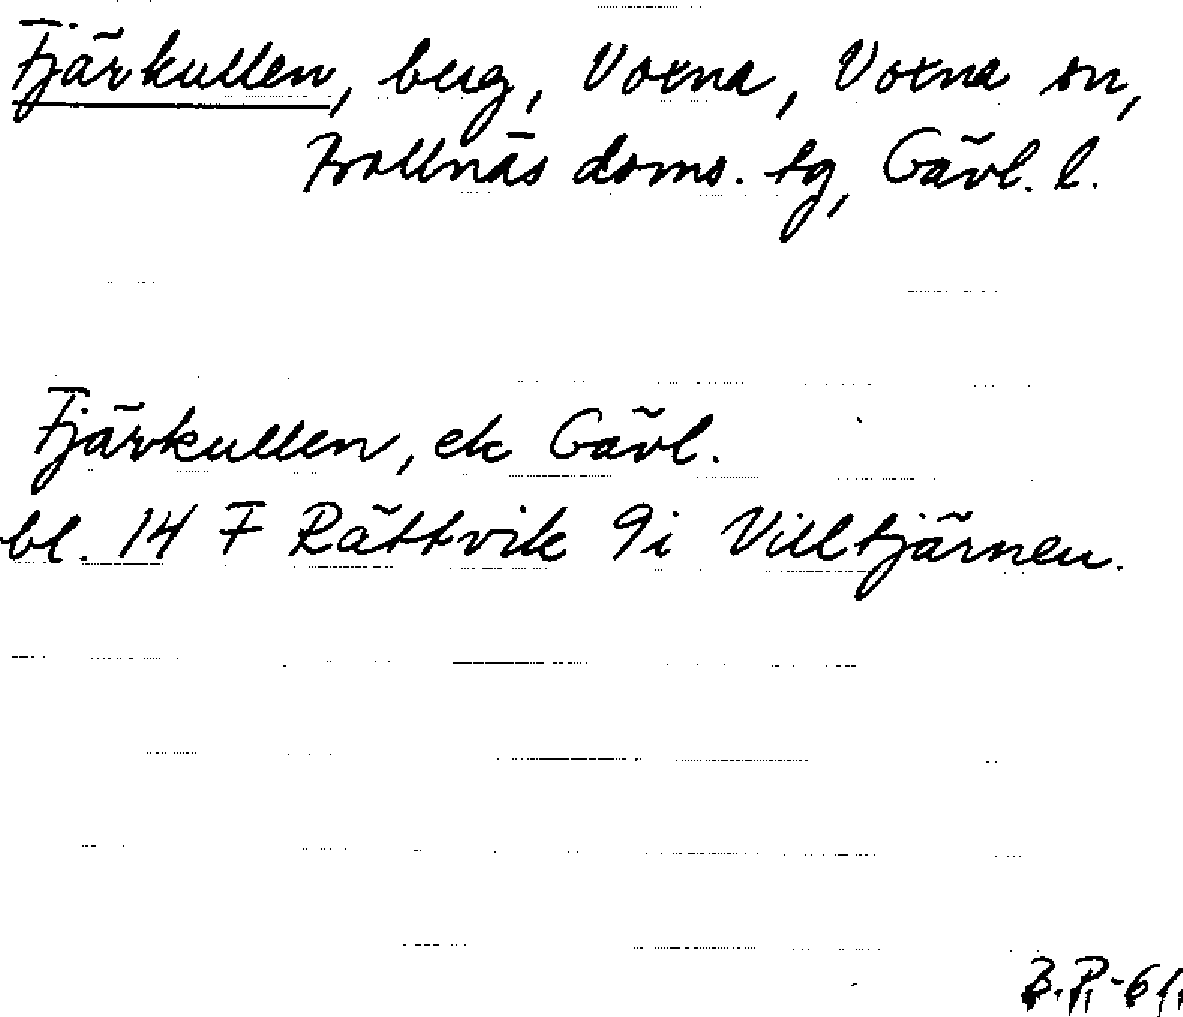 Fjärkullen, berg, Voxna, Voxna sn,
Bollnäs doms. tg, Gävl. l.
Fjärkullen, ek Gävl.
bl. 14 F Rättvik 9i Villtjärnen.
B.P.-61